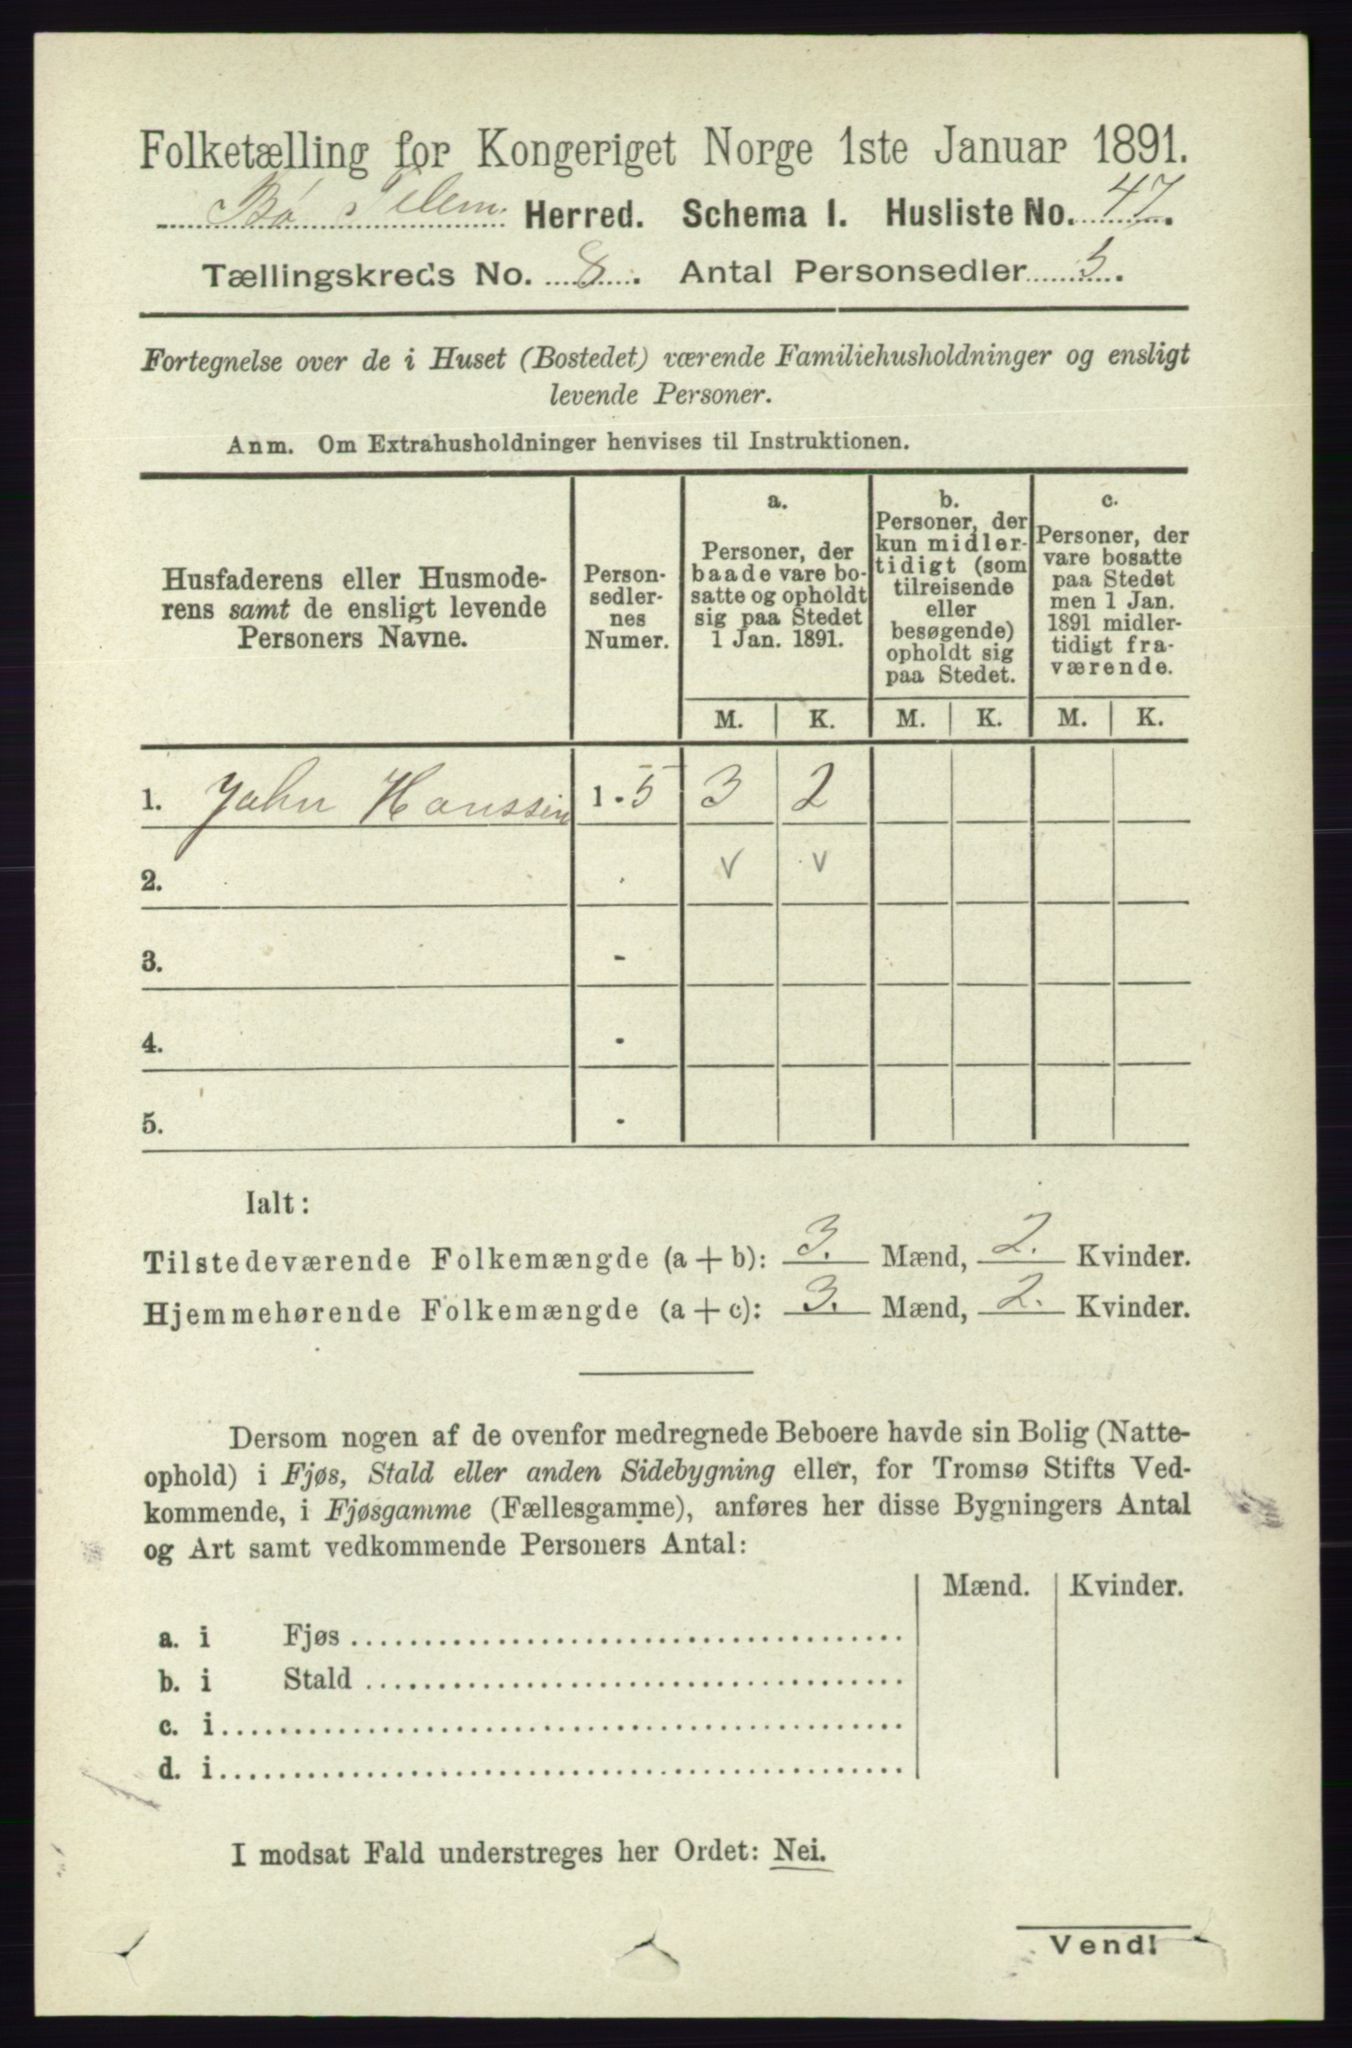 Folketælling for Kongeriget Norge 1ste Januar 1891.
Bø Telem. Herred. Schema I. Husliste No. 47.
Tællingskreds No. 8. Antal Personsedler 5.
Fortegnelse over de i Huset (Bostedet) værende Familiehusholdninger og ensligt
levende Personer.
Anm. Om Extrahusholdninger henvises til Instruktionen.
Husfaderens eller Husmode-
rens samt de ensligt levende
Personers Navne.
Person-
sedler-
nes
Numer.
a.
Personer, der
baade vare bo-
satte og opholdt
sig paa Stedet
1 Jan. 1891.
b.
Personer, der
kun midler-
tidigt (som
tilreisende
eller
besøgende)
opholdt sig
paa Stedet.
c.
Personer, der
vare bosatte
paa Stedet
men 1 Jan.
1891 midler-
tidigt fra-
værende.
M. K. M. K. M. K.
1. John Hanssen 1 - 5 3 2
2. v v
3. -
4. -
5. -
Ialt:
Tilstedeværende Folkemængde (a + b): 3. Mænd, 2. Kvinder.
Hjemmehørende Folkemængde (a + c): 3. Mænd, 2. Kvinder.
Dersom nogen af de ovenfor medregnede Beboere havde sin Bolig (Natte-
ophold) i Fjøs, Stald eller anden Sidebygning eller, for Tromsø Stifts Ved-
kommende, i Fjøsgamme (Fællesgamme), anføres her disse Bygningers Antal
og Art samt vedkommende Personers Antal:
Mænd. Kvinder.
a. i Fjøs
b. i Stald
c. i
d. i
I modsat Fald understreges her Ordet: Nei.
Vend!